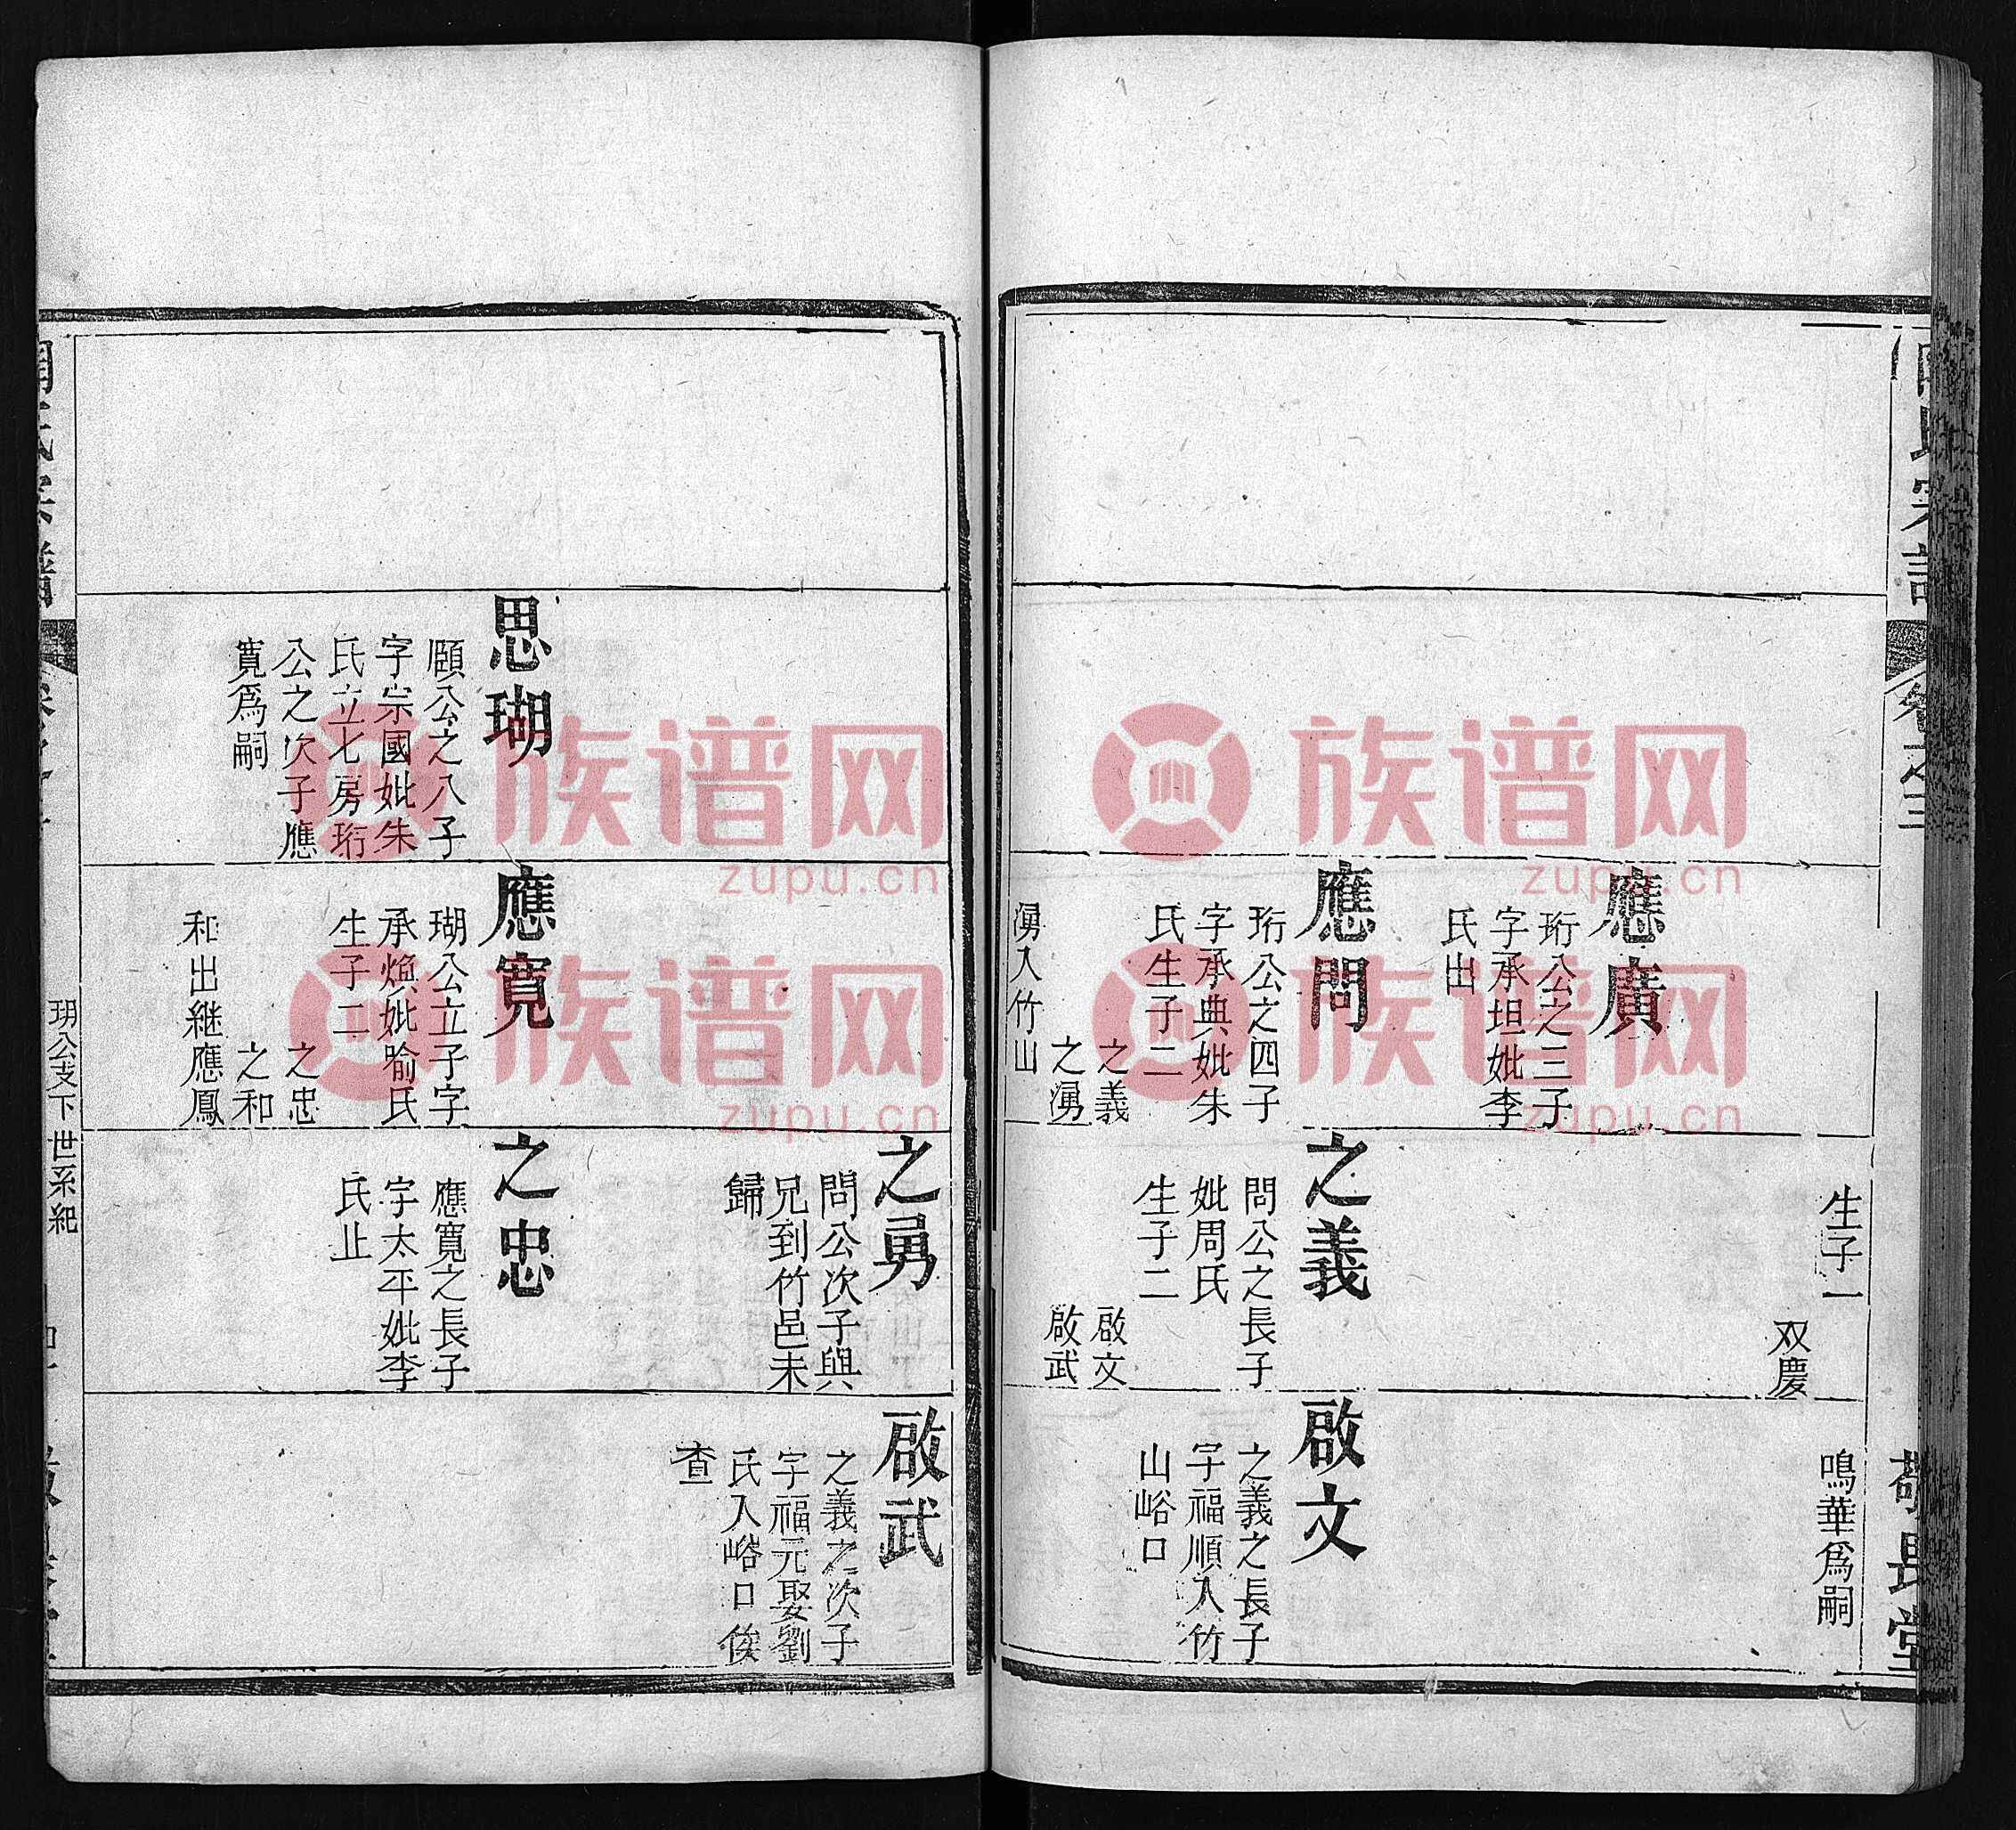 生子一
双慶
鳴華爲嗣
應廣
珩公之三子
字承坦妣李
氏出
應問
珩公之四子
字承典妣朱
氏生子二
之義
之湧
湧入竹山
之義
問公之長子
妣周氏
生子二
啟文
啟武
啟文
之義之長子
字福順入竹
山峪口
敬長堂
思瑚
頤公之八子
字宗國妣朱
氏立七房珩
公之次子應
寬爲嗣
應寬
瑚公立子字
承煥妣喻氏
生子二
之忠
之和
和出継應鳳
之勇
問公次子與
兄到竹邑未
歸
之忠
應寬之長子
字太平妣李
氏止
啟武
之義之次子
字福元娶劉
氏入峪口俟
查
玥公支下 世系紀
族谱网
zupu.cn
族谱网
zupu.cn
族谱网
zupu.cn
族谱网
zupu.cn